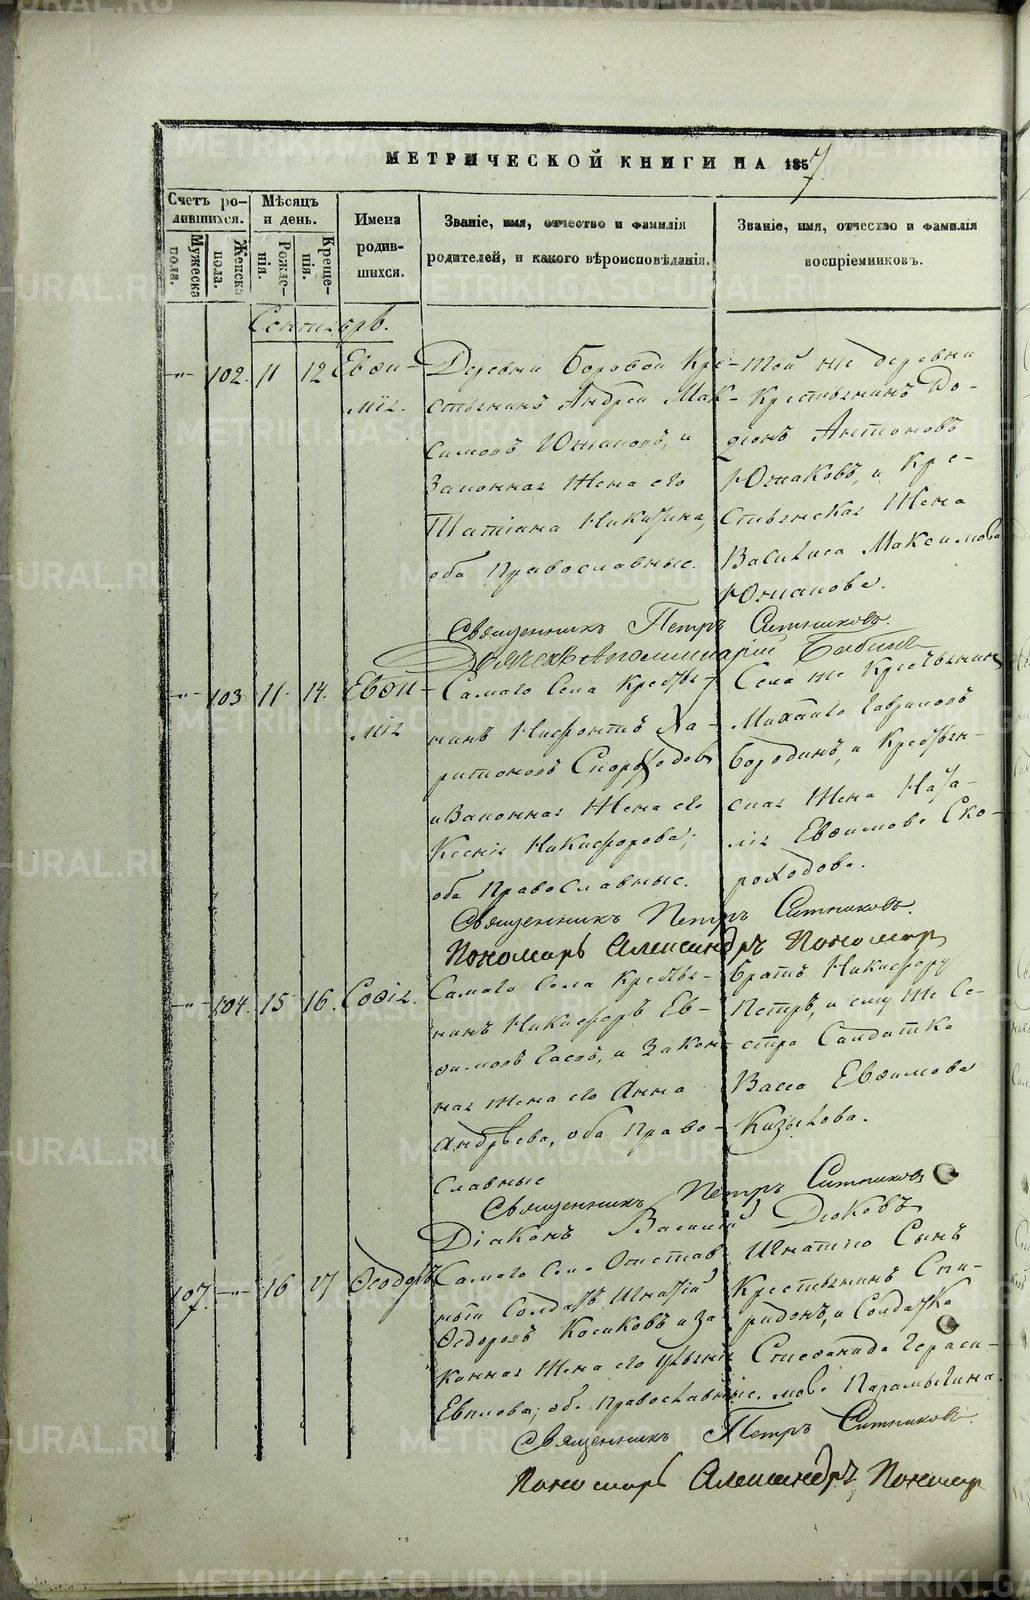 МЕТРИЧЕСКОЙ КНИГИ НА 1857
Счетъ ро-
дившихся.
Мужеска
пола.
Женска
пола.
Мѣсяцъ
и день.
Рожде-
нія.
Креще-
нія.
Имена
родив-
шихся.
Званіе, имя, отчество и фамилія
родителей, и какого вѣроисповѣданія.
Званіе, имя, отчество и фамилія
воспріемниковъ.
Сентябрь.
102. 11 12 Евѳи-
мія.
Деревни Боровой Кре-
стьянинъ Андрей Мак-
симовъ Южаковъ, и
Законная жена его
Татіана Никитина,
оба Православные.
Той же деревни
Крестьянинъ
Антоновъ
Южаковъ, и Кре-
стьянская жена
Василиса Максимова
Южакова.
Священникъ Петръ Ситниковъ.
Дьячекъ Аполлинарій Бабинъ
103 11 14. Евѳи-
мія
Самаго Села Кресть-
нинъ Нифонтъ Ха-
ритоновъ Скороходовъ
и Законная жена его
Ксенія Никифорова;
оба Православные.
Села же Крестьянинъ
Михайло Гавриловъ
Бородинъ, и Крестьян-
ская жена Ната-
лія Евѳимова Ско-
роходова.
Священникъ Петръ Ситниковъ.
Пономарь Александръ Пономар
104. 15 16. Софія.
Самаго Села Кресть-
нинъ Никифоръ Ев-
ѳимовъ и Закон-
ная жена его Анна
Андрѣева, оба Право-
славные
Братъ Никифору
Петръ, и ему же Се-
стра Салдатка
Васса Евѳимова
Казылова.
Священникъ Петръ Ситниковъ
Діаконъ Василій Дюковъ
107. 16 27 Ѳеодоръ
Самаго Села Отстав-
ный Солдатъ Игнатій
Ѳедоровъ Косиковъ и За-
конная жена его
Евплова; оба Православные.
Игнатію Сынъ
Крестьянинъ Спи-
ридонъ, и Солдатка
Стефанида Гераси-
мова Парамыгина.
Священникъ Петръ Ситниковъ.
Пономарь Александръ Пономар
METRIKI.GASO-URAL.RU